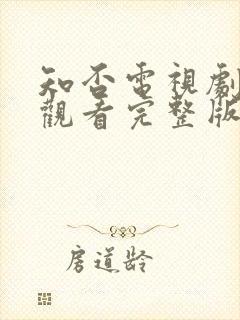 知否電視劇
觀看完整版
房道龄